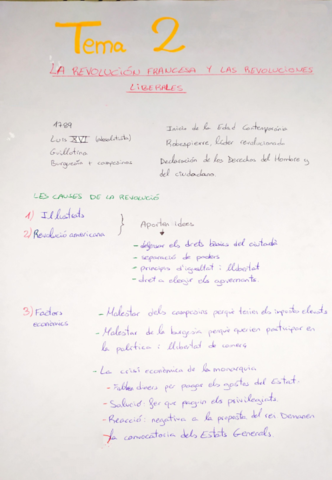 Tema 2
LA REVOLUCIÓN FRANCESA Y LAS REVOLUCIONES
LIBERALES
1789
Luis XVI (absolutista)
Guillotina
Burguesía + campesinos
Inicio de la Edad Contemporánea
Robespierre, líder revolucionario
Declaración de los Derechos del Hombre y
del ciudadano
LES CAUSES DE LA REVOLUCIÓ
1) Il·lustrats
2) Revolució americana
Aporten idees
- defensar els drets bàsics del ciutadà
- separació de poders
- principis d'igualtat i llibertat
- dret a elegir als governants
3) Factors
econòmics
- Malestar dels camperols perquè tenien els impostos elevats
- Malestar de la burgesia perquè querien participar en
la política i llibertat de comerç
- La crisi econòmica de la monarquia
- Falten diners per pagar els gastos del Estat.
- Solució: fer que paguin els privilegiats.
- Reacció: negativa a la proposta del rei Demanen
la convocatoria dels Estats Generals.